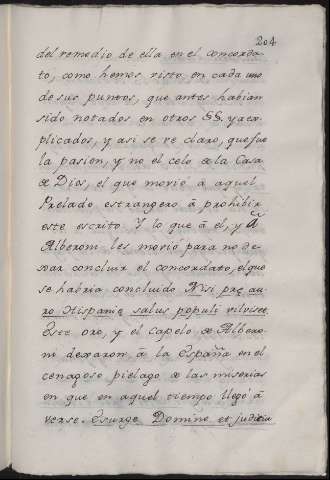 204
del remedio de ella en el concorda-
to, como hemos visto en cada uno
de sus puntos, que antes habian
sido notados en otros §§. y a ex-
plicados, y asi se ve claro, que fue
la pasion, y no el celo de la Casa
de Dios, el que movió á aquel
Prelado estrangero á prohibir
este escrito. Y lo que á el, y á
Alberoni les movió para no de-
xar concluir el concordato, el que
se habria concluido Nisi præ au-
ro Hispaniæ salus populi vilviset.
Este oro, y el capelo de Albero-
ni dexaron á la España en el
cenagoso pielago de las miserias
en que en aquel tiempo llegó á
verse. Exurge Domine et judica